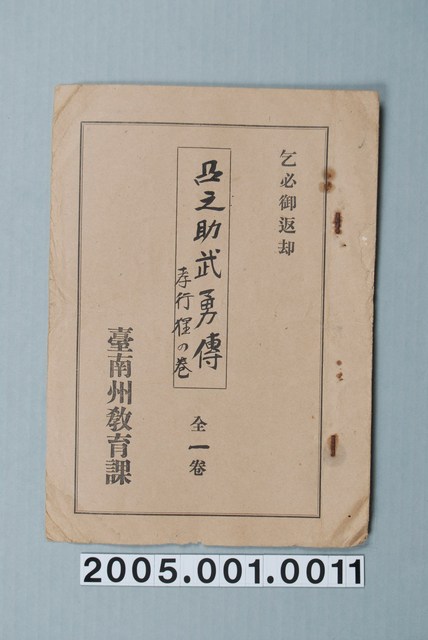 乞必御返却
凸之助武勇傳
孝行狸の巻
全一卷
臺南州教育課
2005.001.0011